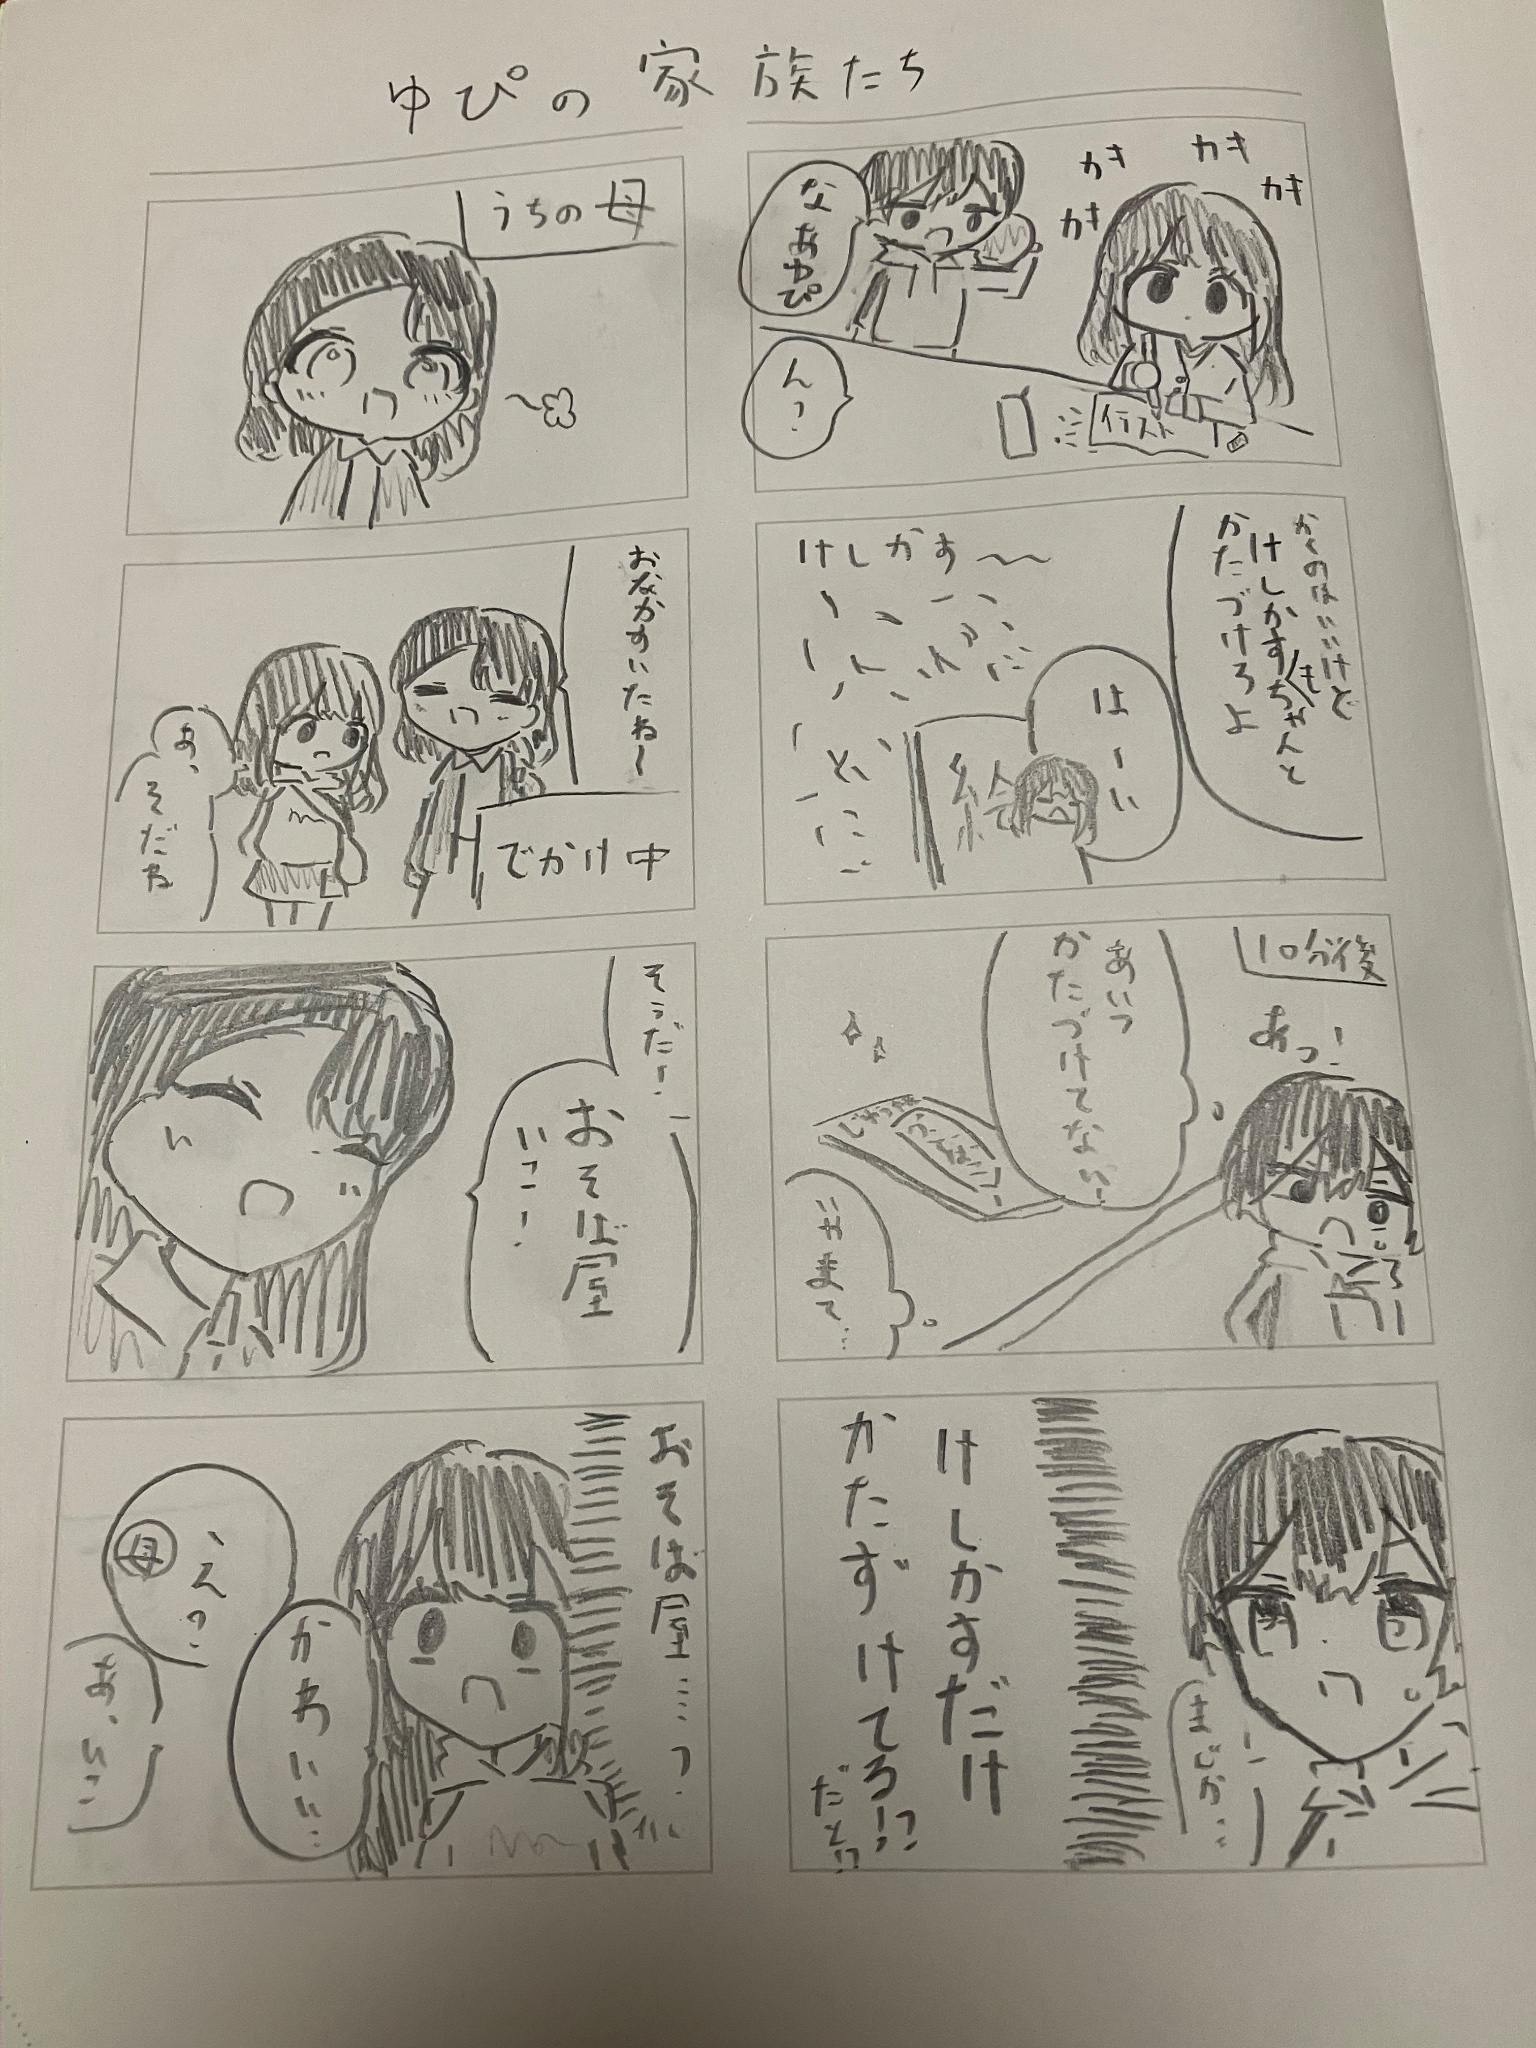 ゆぴの家族たち
カキ
カキ
カキ
カキ
なあゆぴ
イラスト
ん?
かくのはいいけど
けしかすもちゃんと
かたづけろよ
はーい
けしかす〜〜
絵
10分後
あっ!
あいつ
かたづけてない!
いやまて…
まじか…
けしかすだけ
かたずけてる!?
だと!?
うちの母
おなかすいたね〜
でかけ中
あ、
そだね
そうだ!
おそば屋
いこー!
おそば屋……?
かわいい…
え?
母